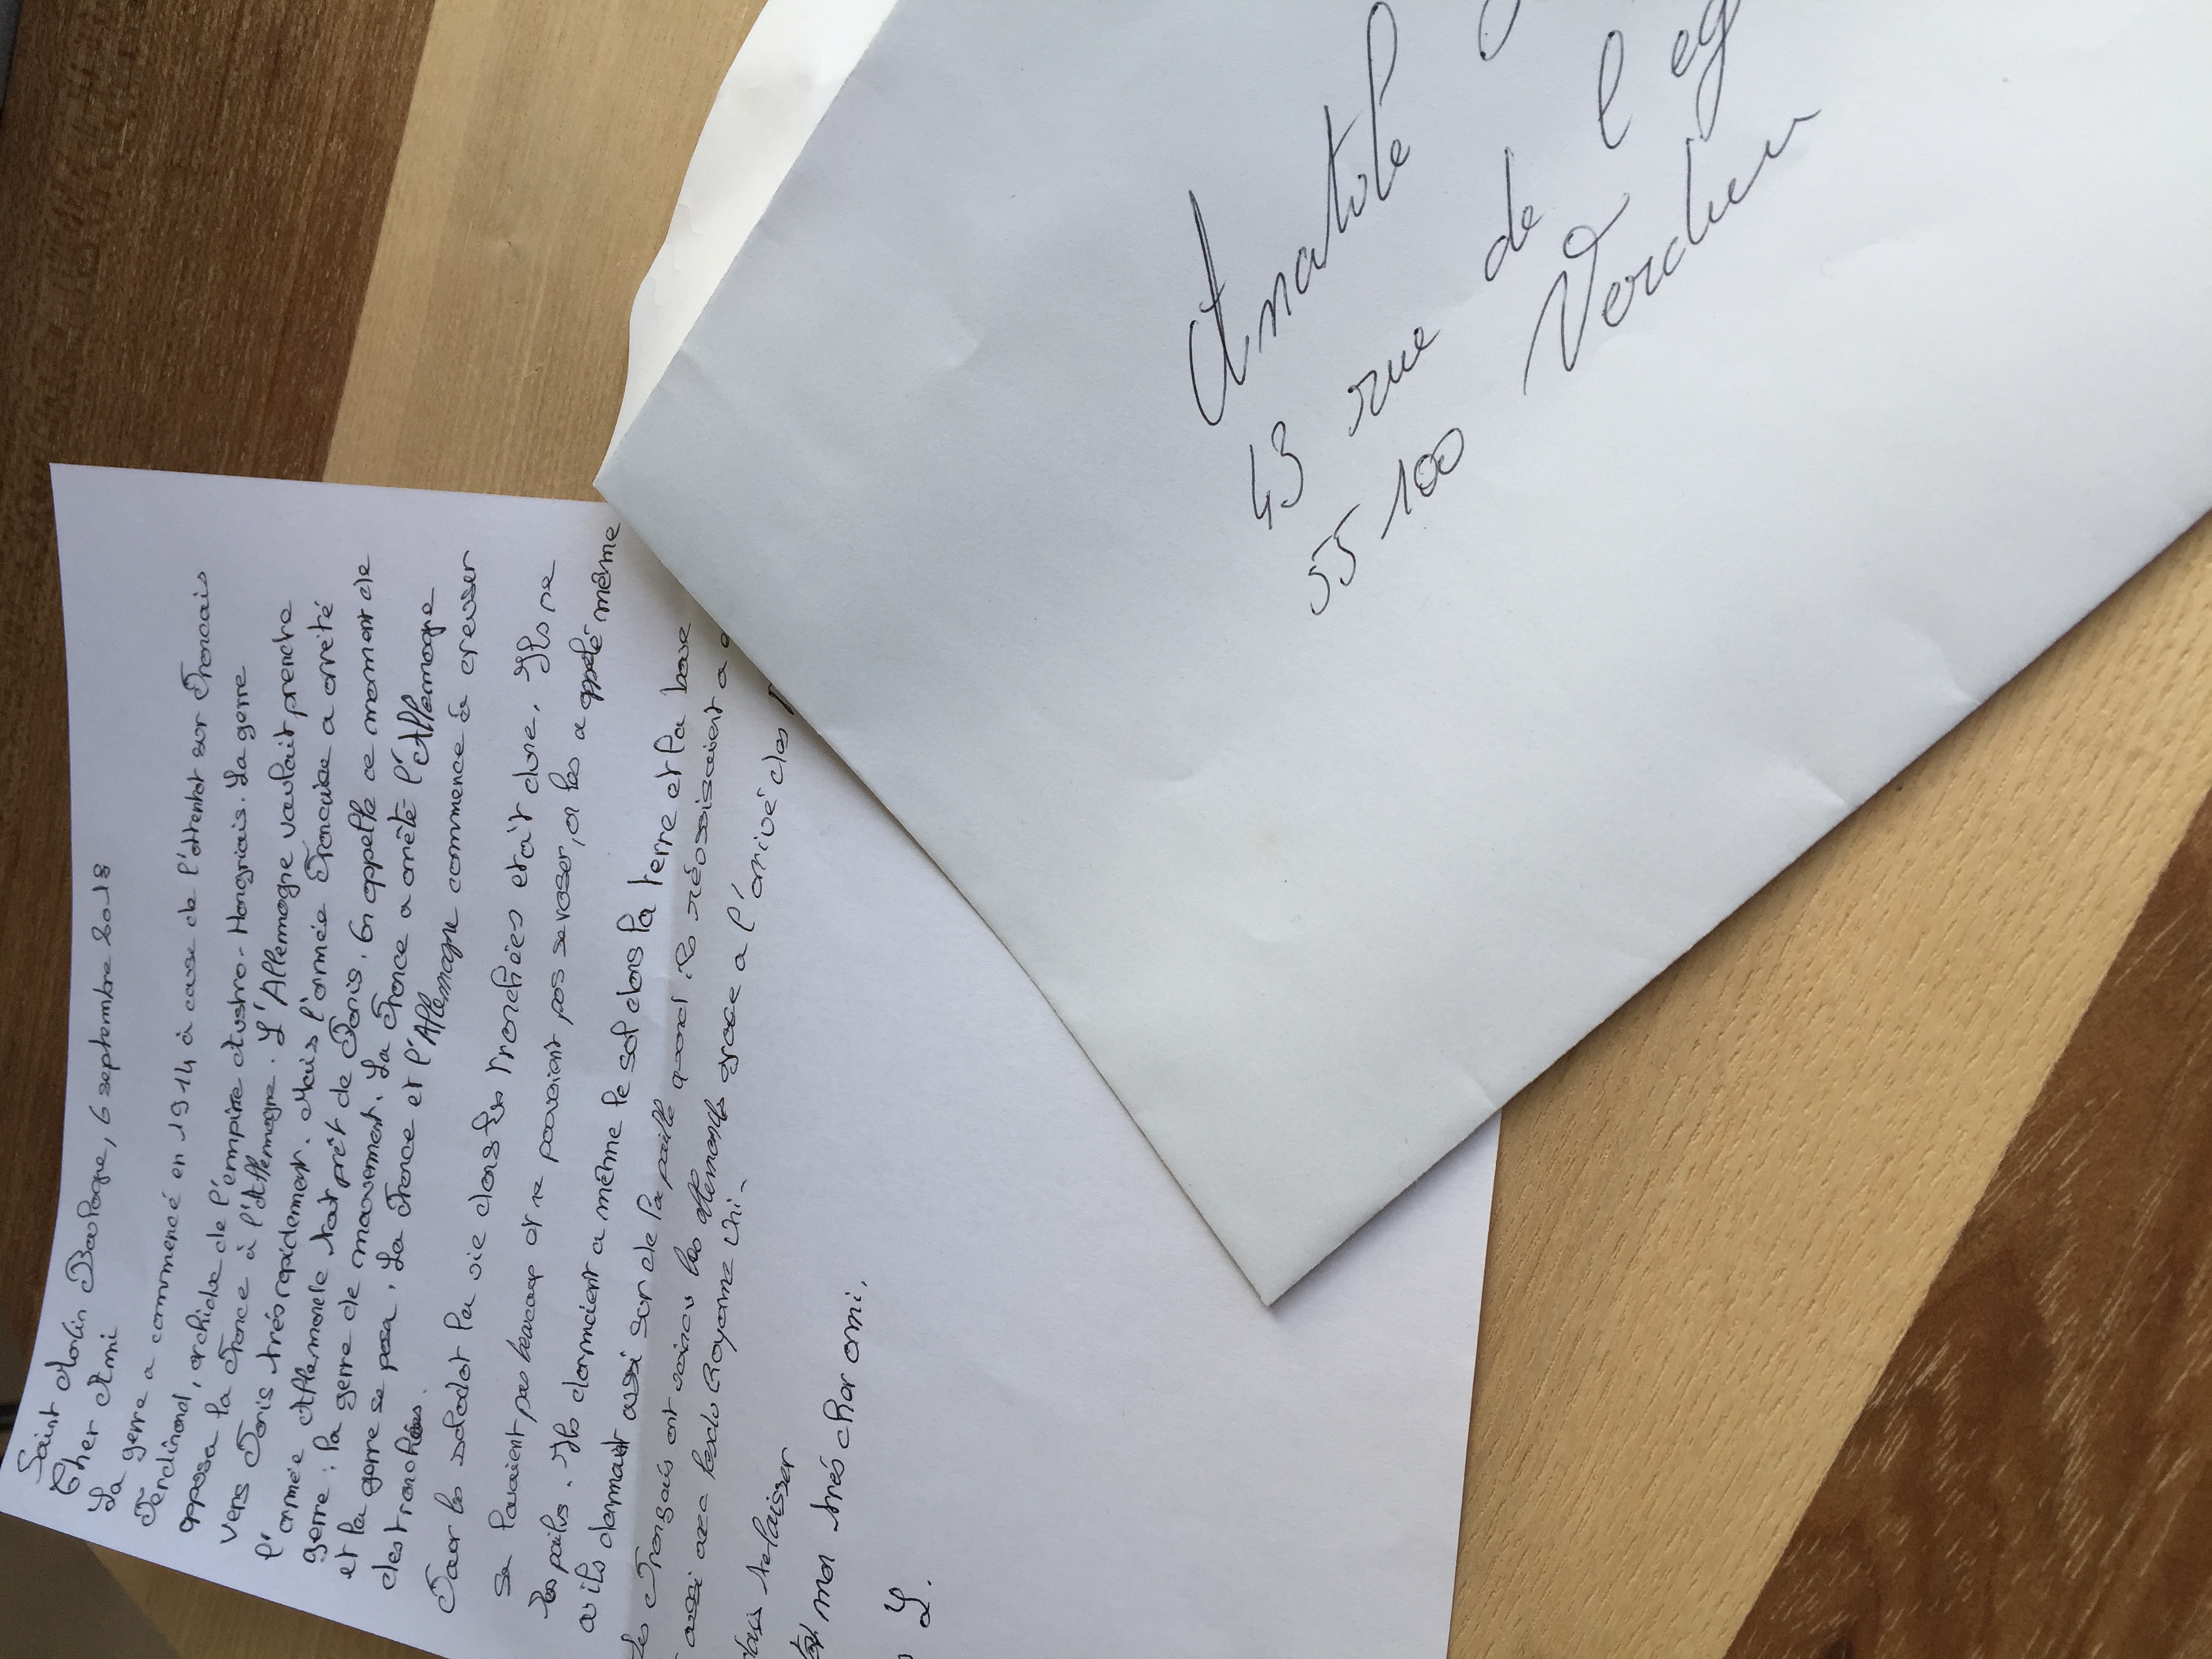 Saint Martin Boulogne, 6 septembre 2018
Cher Ami
La gerre a commencé en 1914 à cause de l'attentat sur François
Ferdinand, archiduc de l'empire Austro-Hongriais. La gerre
opposa la France à l'Allemagne. L'Allemagne voulait prendre
vers Paris très rapidement. Mais l'armée Francaise a arrété
l'armée Allemande tout prêt de Paris, on appelle ce moment de
gerre : la gerre de mouvement. La France a arrêté l'Allemagne
et la gerre se posa, La France et l'Allemagne commence à creuser
des tranchées.
Pour les soldat la vie dans les tranchées était dure, Ils ne
se lavaient pas beaucoup et ne pouvaient pas se raser, on les a appelé même
les poilus. Ils dormaient a même le sol dans la terre et la boue
ou ils dormait aussi sur de la paille quand ils réussissaient a
les Français ont vaincu les allemands grace a l'arrivé des
aussi avec Royaume Uni.
dois te laisser
mon très cher ami.
L.
Anatole
43 rue de l eg
55 100 Verdun